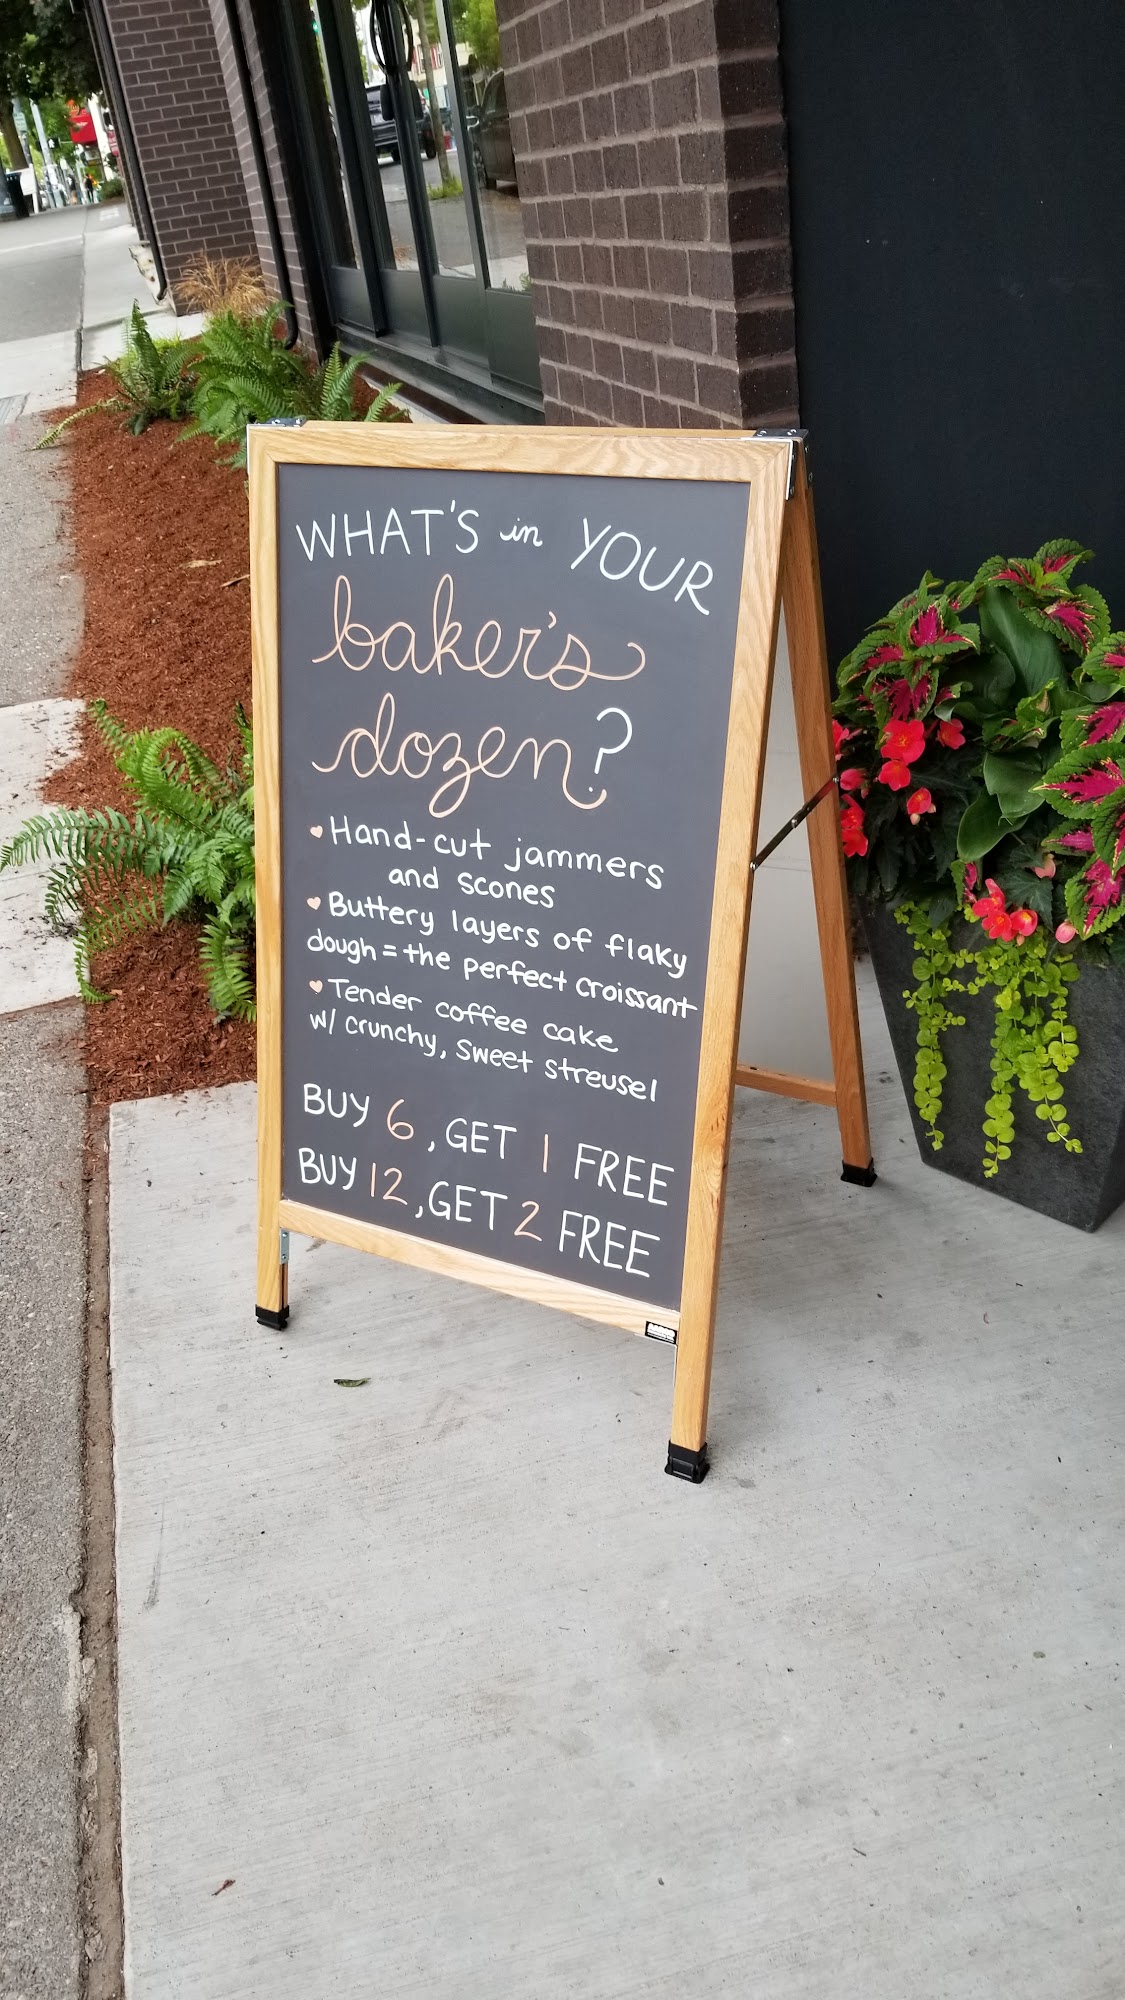 WHAT'S in YOUR
baker's
dozen?
Hand-cut jammers
and scones
Buttery layers of flaky
dough = the perfect croissant
Tender coffee cake
w/ crunchy, sweet streusel
BUY 6, GET 1 FREE
BUY 12, GET 2 FREE